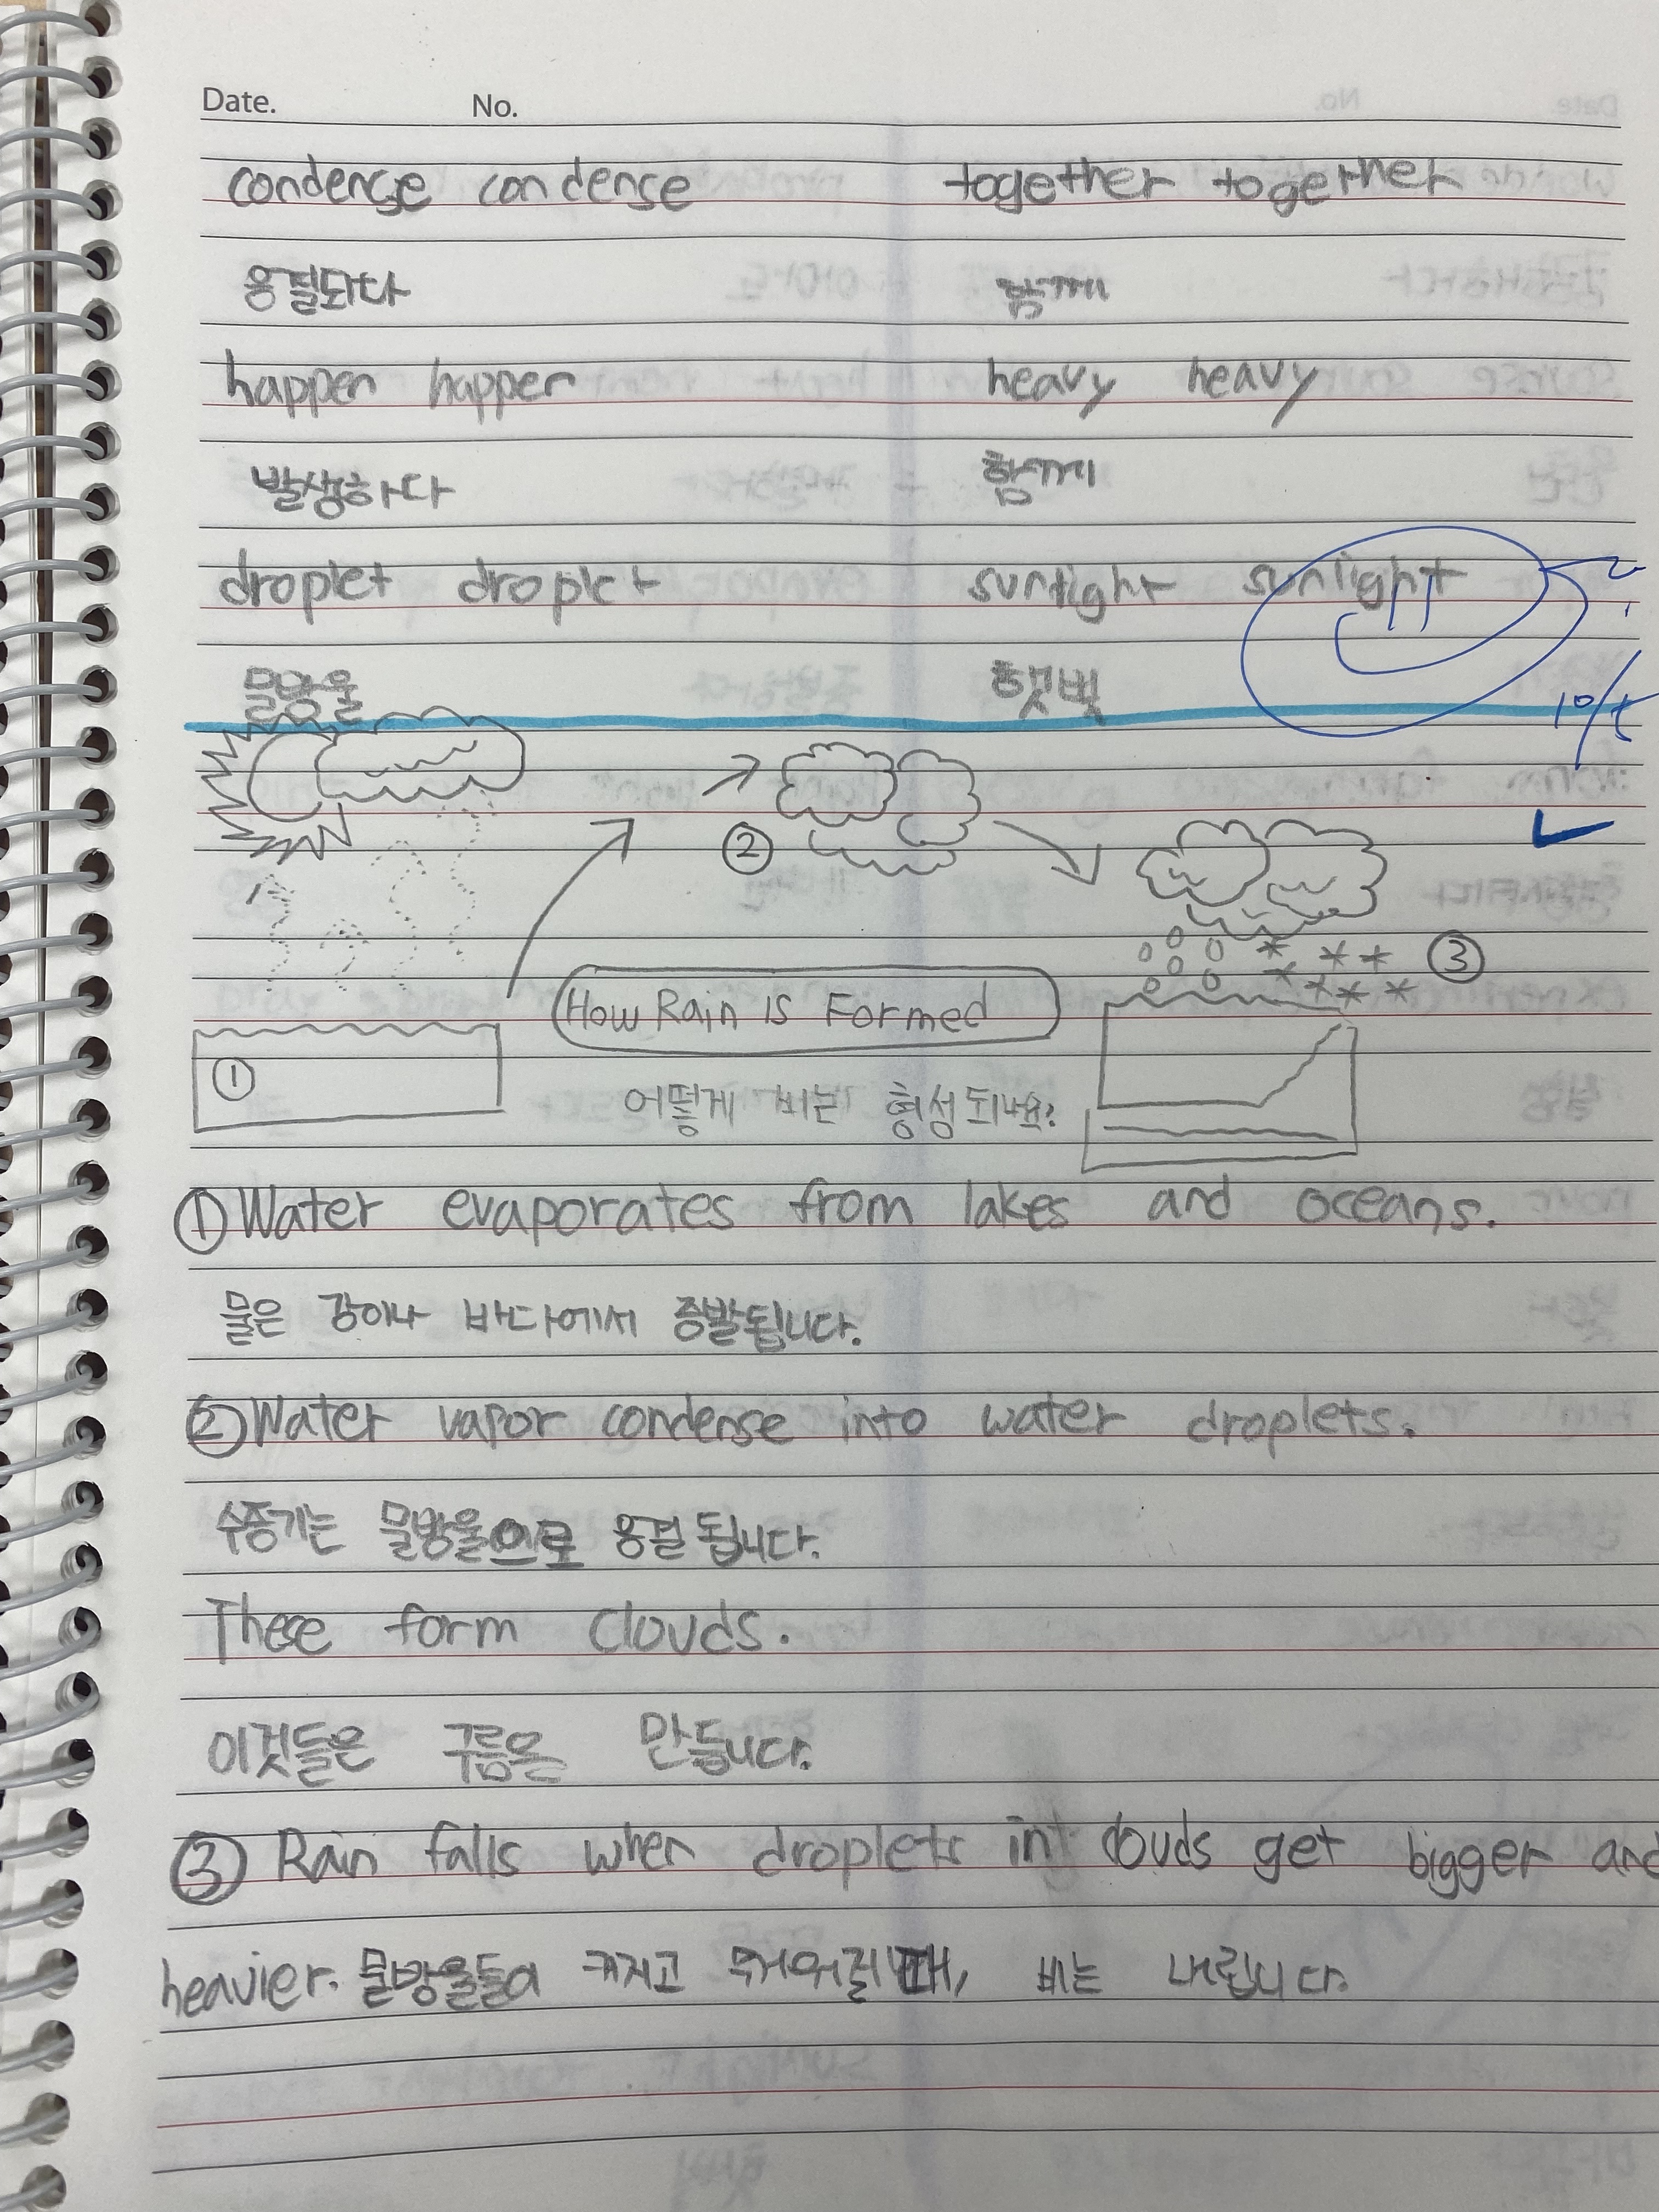 Date. No.
condense condense together together
응결되다 함께
happen happen heavy heavy
발생하다 함께
droplet droplet sunlight sunlight
물방울 햇빛
10/5
②
③
How Rain Is Formed
①
어떻게 비는 형성되나요?
① Water evaporates from lakes and oceans.
물은 강이나 바다에서 증발됩니다.
② Water vapor condense into water droplets.
수증기는 물방울으로 응결됩니다.
These form clouds.
이것들은 구름은 만듭니다.
③ Rain falls when droplets in clouds get bigger and
heavier. 물방울들이 커지고 무거워질때, 비는 내립니다.